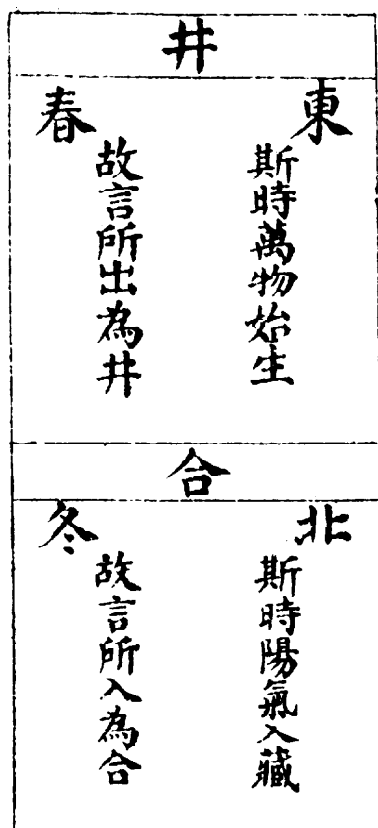 井
東
斯時萬物始生
春
故言所出為井
合
北
斯時陽氣入藏
冬
故言所入為合